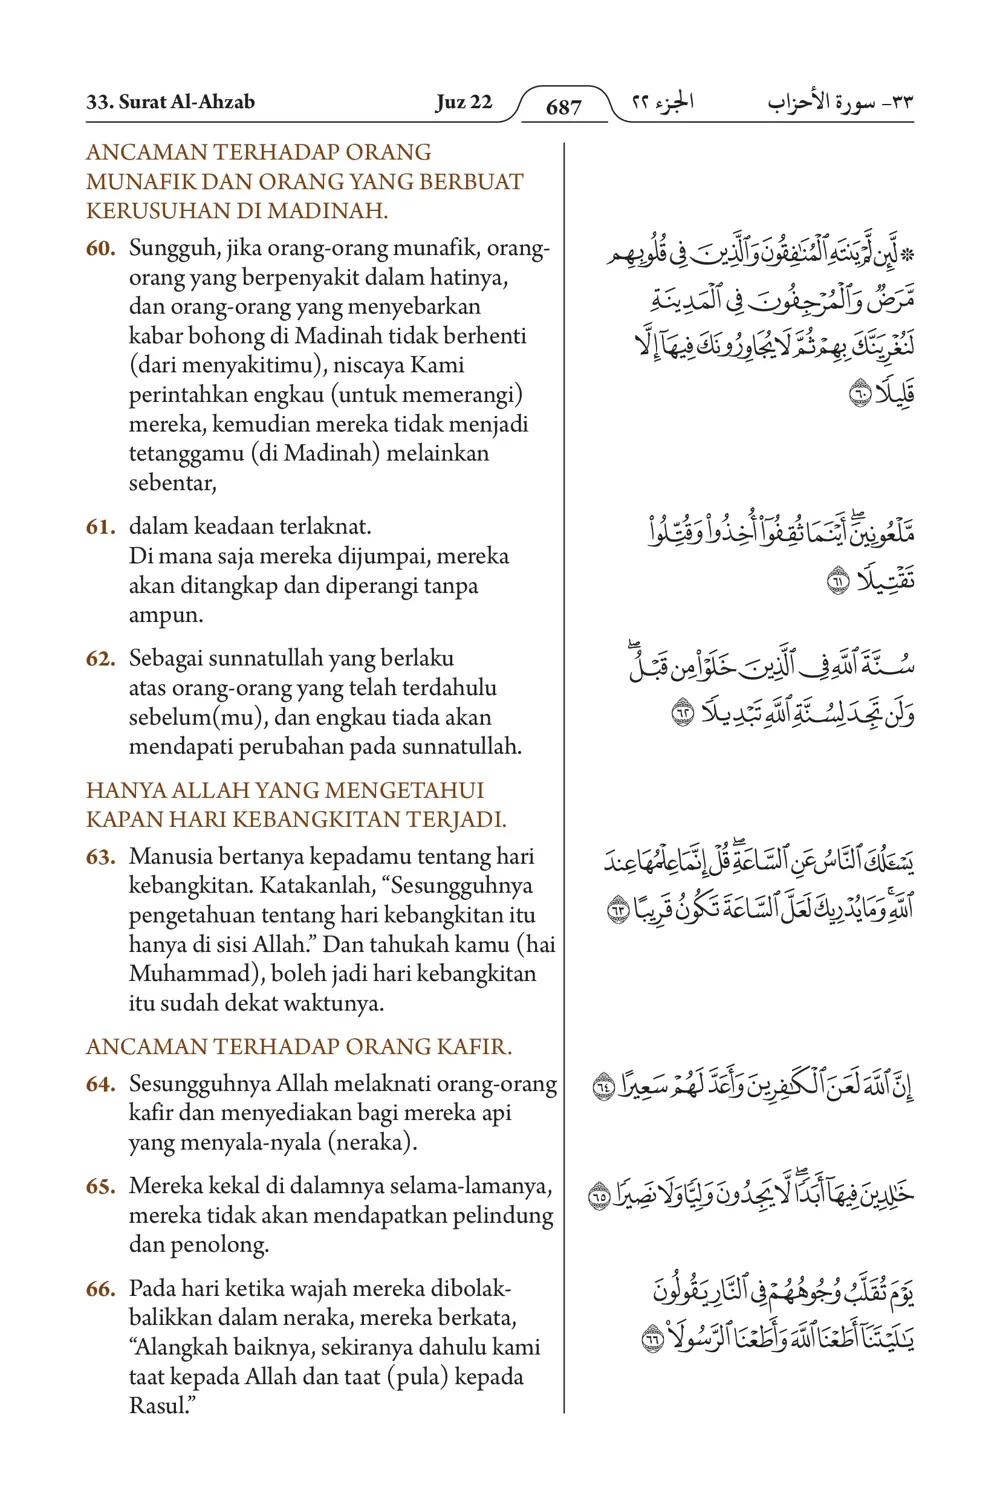 33. Surat Al-Ahzab Juz 22 687 الجزء ٢٢ ٣٣- سورة الأحزاب
ANCAMAN TERHADAP ORANG
MUNAFIK DAN ORANG YANG BERBUAT
KERUSUHAN DI MADINAH.
60. Sungguh, jika orang-orang munafik, orang-
orang yang berpenyakit dalam hatinya,
dan orang-orang yang menyebarkan
kabar bohong di Madinah tidak berhenti
(dari menyakitimu), niscaya Kami
perintahkan engkau (untuk memerangi)
mereka, kemudian mereka tidak menjadi
tetanggamu (di Madinah) melainkan
sebentar,
۞ لَّئِن لَّمْ يَنتَهِ ٱلْمُنَٰفِقُونَ وَٱلَّذِينَ فِى قُلُوبِهِم
مَّرَضٌ وَٱلْمُرْجِفُونَ فِى ٱلْمَدِينَةِ
لَنُغْرِيَنَّكَ بِهِمْ ثُمَّ لَا يُجَاوِرُونَكَ فِيهَآ إِلَّا
قَلِيلًا ٦٠
61. dalam keadaan terlaknat.
Di mana saja mereka dijumpai, mereka
akan ditangkap dan diperangi tanpa
ampun.
مَّلْعُونِينَ ۖ أَيْنَمَا ثُقِفُوٓا۟ أُخِذُوا۟ وَقُتِّلُوا۟
تَقْتِيلًا ٦١
62. Sebagai sunnatullah yang berlaku
atas orang-orang yang telah terdahulu
sebelum(mu), dan engkau tiada akan
mendapati perubahan pada sunnatullah.
سُنَّةَ ٱللَّهِ فِى ٱلَّذِينَ خَلَوْا۟ مِن قَبْلُ ۖ
وَلَن تَجِدَ لِسُنَّةِ ٱللَّهِ تَبْدِيلًا ٦٢
HANYA ALLAH YANG MENGETAHUI
KAPAN HARI KEBANGKITAN TERJADI.
63. Manusia bertanya kepadamu tentang hari
kebangkitan. Katakanlah, “Sesungguhnya
pengetahuan tentang hari kebangkitan itu
hanya di sisi Allah.” Dan tahukah kamu (hai
Muhammad), boleh jadi hari kebangkitan
itu sudah dekat waktunya.
يَسْـَٔلُكَ ٱلنَّاسُ عَنِ ٱلسَّاعَةِ ۖ قُلْ إِنَّمَا عِلْمُهَا عِندَ
ٱللَّهِ ۚ وَمَا يُدْرِيكَ لَعَلَّ ٱلسَّاعَةَ تَكُونُ قَرِيبًا ٦٣
ANCAMAN TERHADAP ORANG KAFIR.
64. Sesungguhnya Allah melaknati orang-orang
kafir dan menyediakan bagi mereka api
yang menyala-nyala (neraka).
إِنَّ ٱللَّهَ لَعَنَ ٱلْكَٰفِرِينَ وَأَعَدَّ لَهُمْ سَعِيرًا ٦٤
65. Mereka kekal di dalamnya selama-lamanya,
mereka tidak akan mendapatkan pelindung
dan penolong.
خَٰلِدِينَ فِيهَآ أَبَدًا ۖ لَّا يَجِدُونَ وَلِيًّا وَلَا نَصِيرًا ٦٥
66. Pada hari ketika wajah mereka dibolak-
balikkan dalam neraka, mereka berkata,
“Alangkah baiknya, sekiranya dahulu kami
taat kepada Allah dan taat (pula) kepada
Rasul.”
يَوْمَ تُقَلَّبُ وُجُوهُهُمْ فِى ٱلنَّارِ يَقُولُونَ
يَٰلَيْتَنَآ أَطَعْنَا ٱللَّهَ وَأَطَعْنَا ٱلرَّسُولَا۠ ٦٦